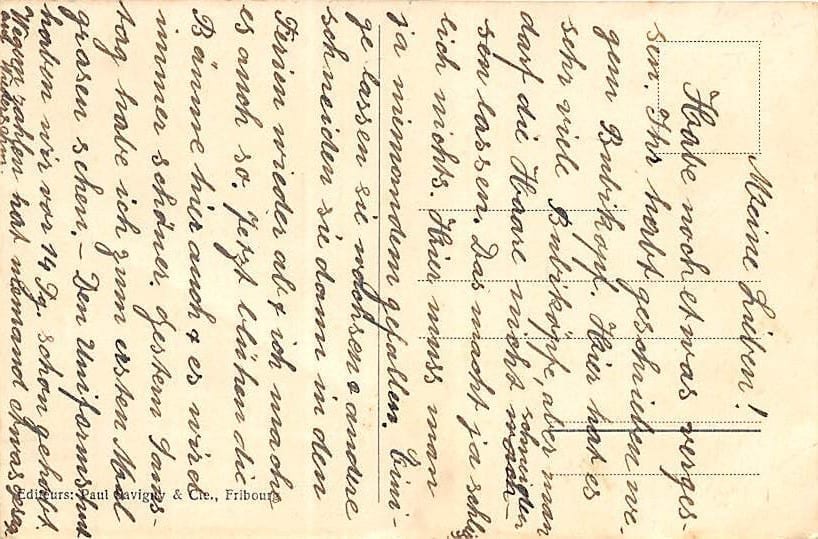 Meine Lieben!
Habe noch etwas verges-
sen. Ihr habt geschrieben we-
gem Bubikopf. Hier hat es
sehr viele Bubiköpfe, aber man
darf die Haare nicht schneiden
sen lassen. Das macht ja schließ
lich nichts. Hier muss man
ja niemandem gefallen. Eini-
ge lassen sie wachsen & andere
schneiden sie dann in den
Ferien wieder ab & ich mache
es auch so. Jetzt blühen die
Bäume hier auch & es wird
immer schöner. Gestern Sams-
tag habe ich zum ersten Mal
grasen sehen. – Den Uniformhut
haben wir vor 14 Tg. schon gehabt.
Wegen zahlen hat niemand etwas gesagt
Editeurs: Paul Savigny & Cie., Fribourg